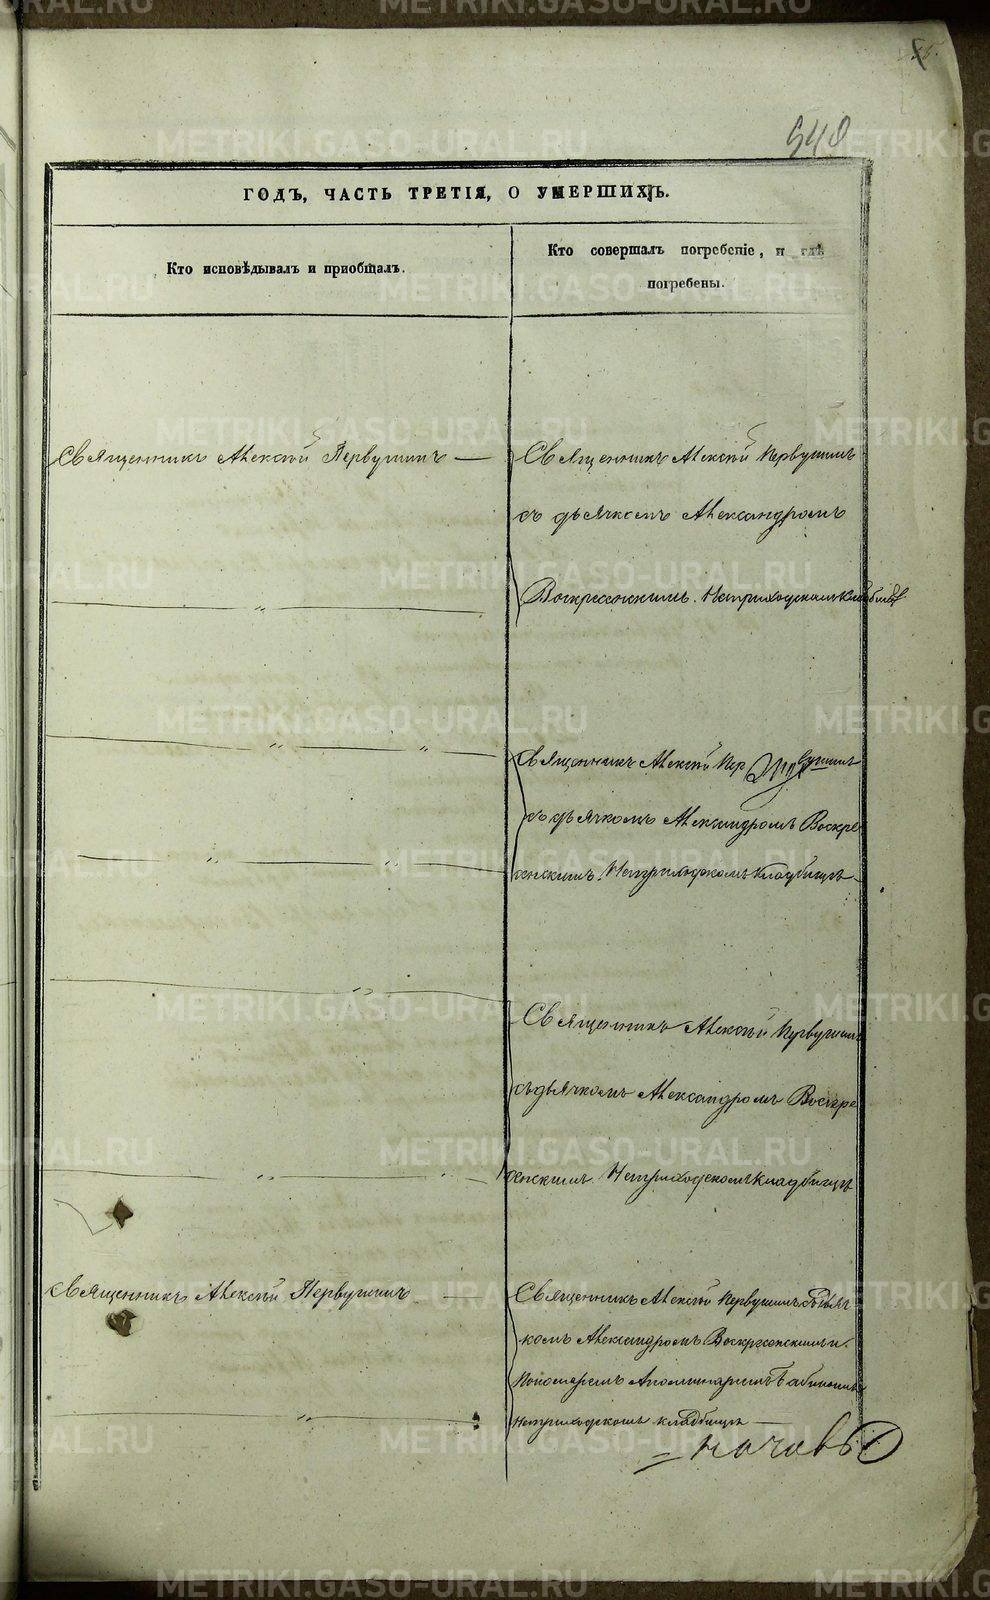 548
ГОДЪ, ЧАСТЬ ТРЕТІЯ, О УМЕРШИХЪ.
Кто исповѣдывалъ и приобщалъ.
Кто совершалъ погребеніе, и гдѣ
погребены.
Священникъ Алексѣй Первушинъ
Священникъ Алексѣй Первушинъ
съ дьячкомъ Александромъ
Воскресенскимъ. На приходскомъ кладбищѣ
Священникъ Алексѣй Пер вушинъ
съ дьячкомъ Александромъ Воскре
сенскимъ. На приходскомъ кладбищѣ
Священникъ Алексѣй Первушинъ
съ дьячкомъ Александромъ Воскре
сенскимъ. На приходскомъ кладбищѣ
Священникъ Алексѣй Первушинъ
Священникъ Алексѣй Первушинъ съ дьяч-
комъ Александромъ Воскресенскимъ и
Пономаремъ Аполлинаріемъ Бабиновымъ
На приходскомъ кладбищѣ
METRIKI.GASO-URAL.RU